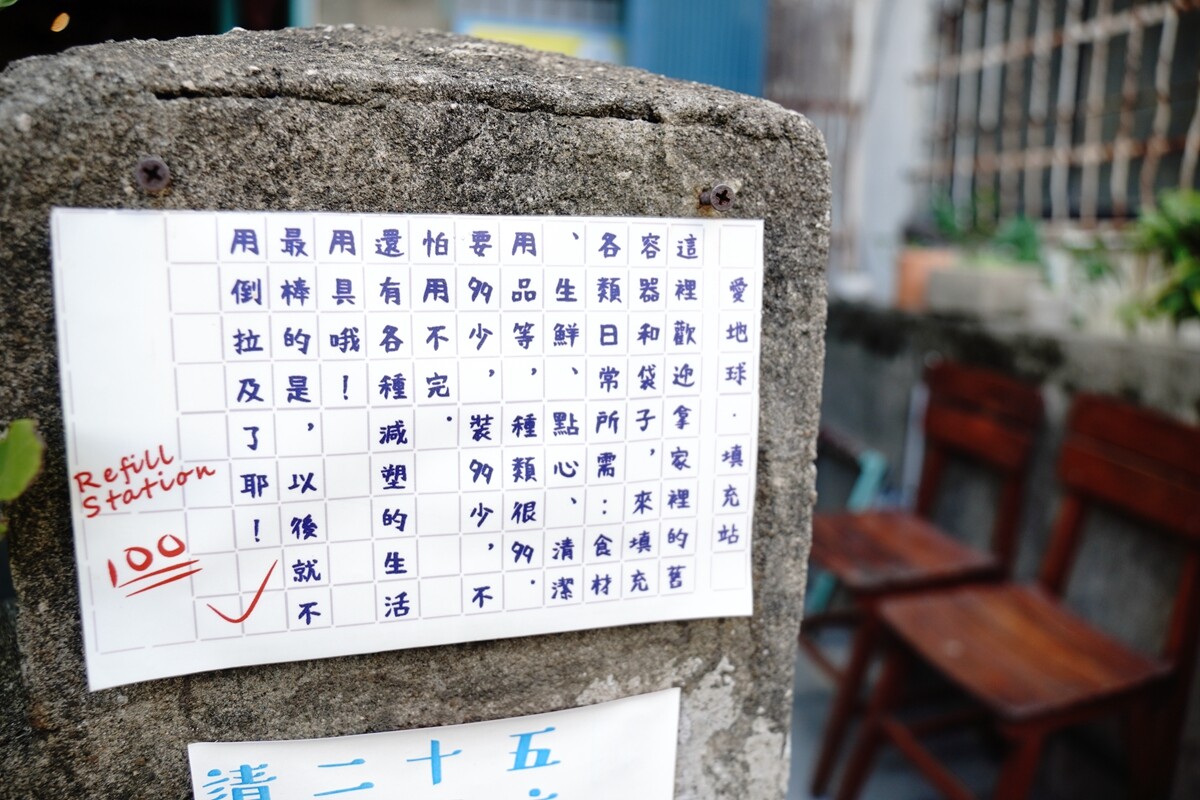 愛地球．填充站
這裡歡迎拿家裡的舊
容器和袋子，來填充
各類日常所需：食材
、生鮮、點心、清潔
用品等，種類很多．
要多少，裝多少，不
怕用不完．
還有各種減塑的生活
用具哦！
最棒的是，以後就不
用倒拉及了耶！
Refill
Station
100
五
十
二
清